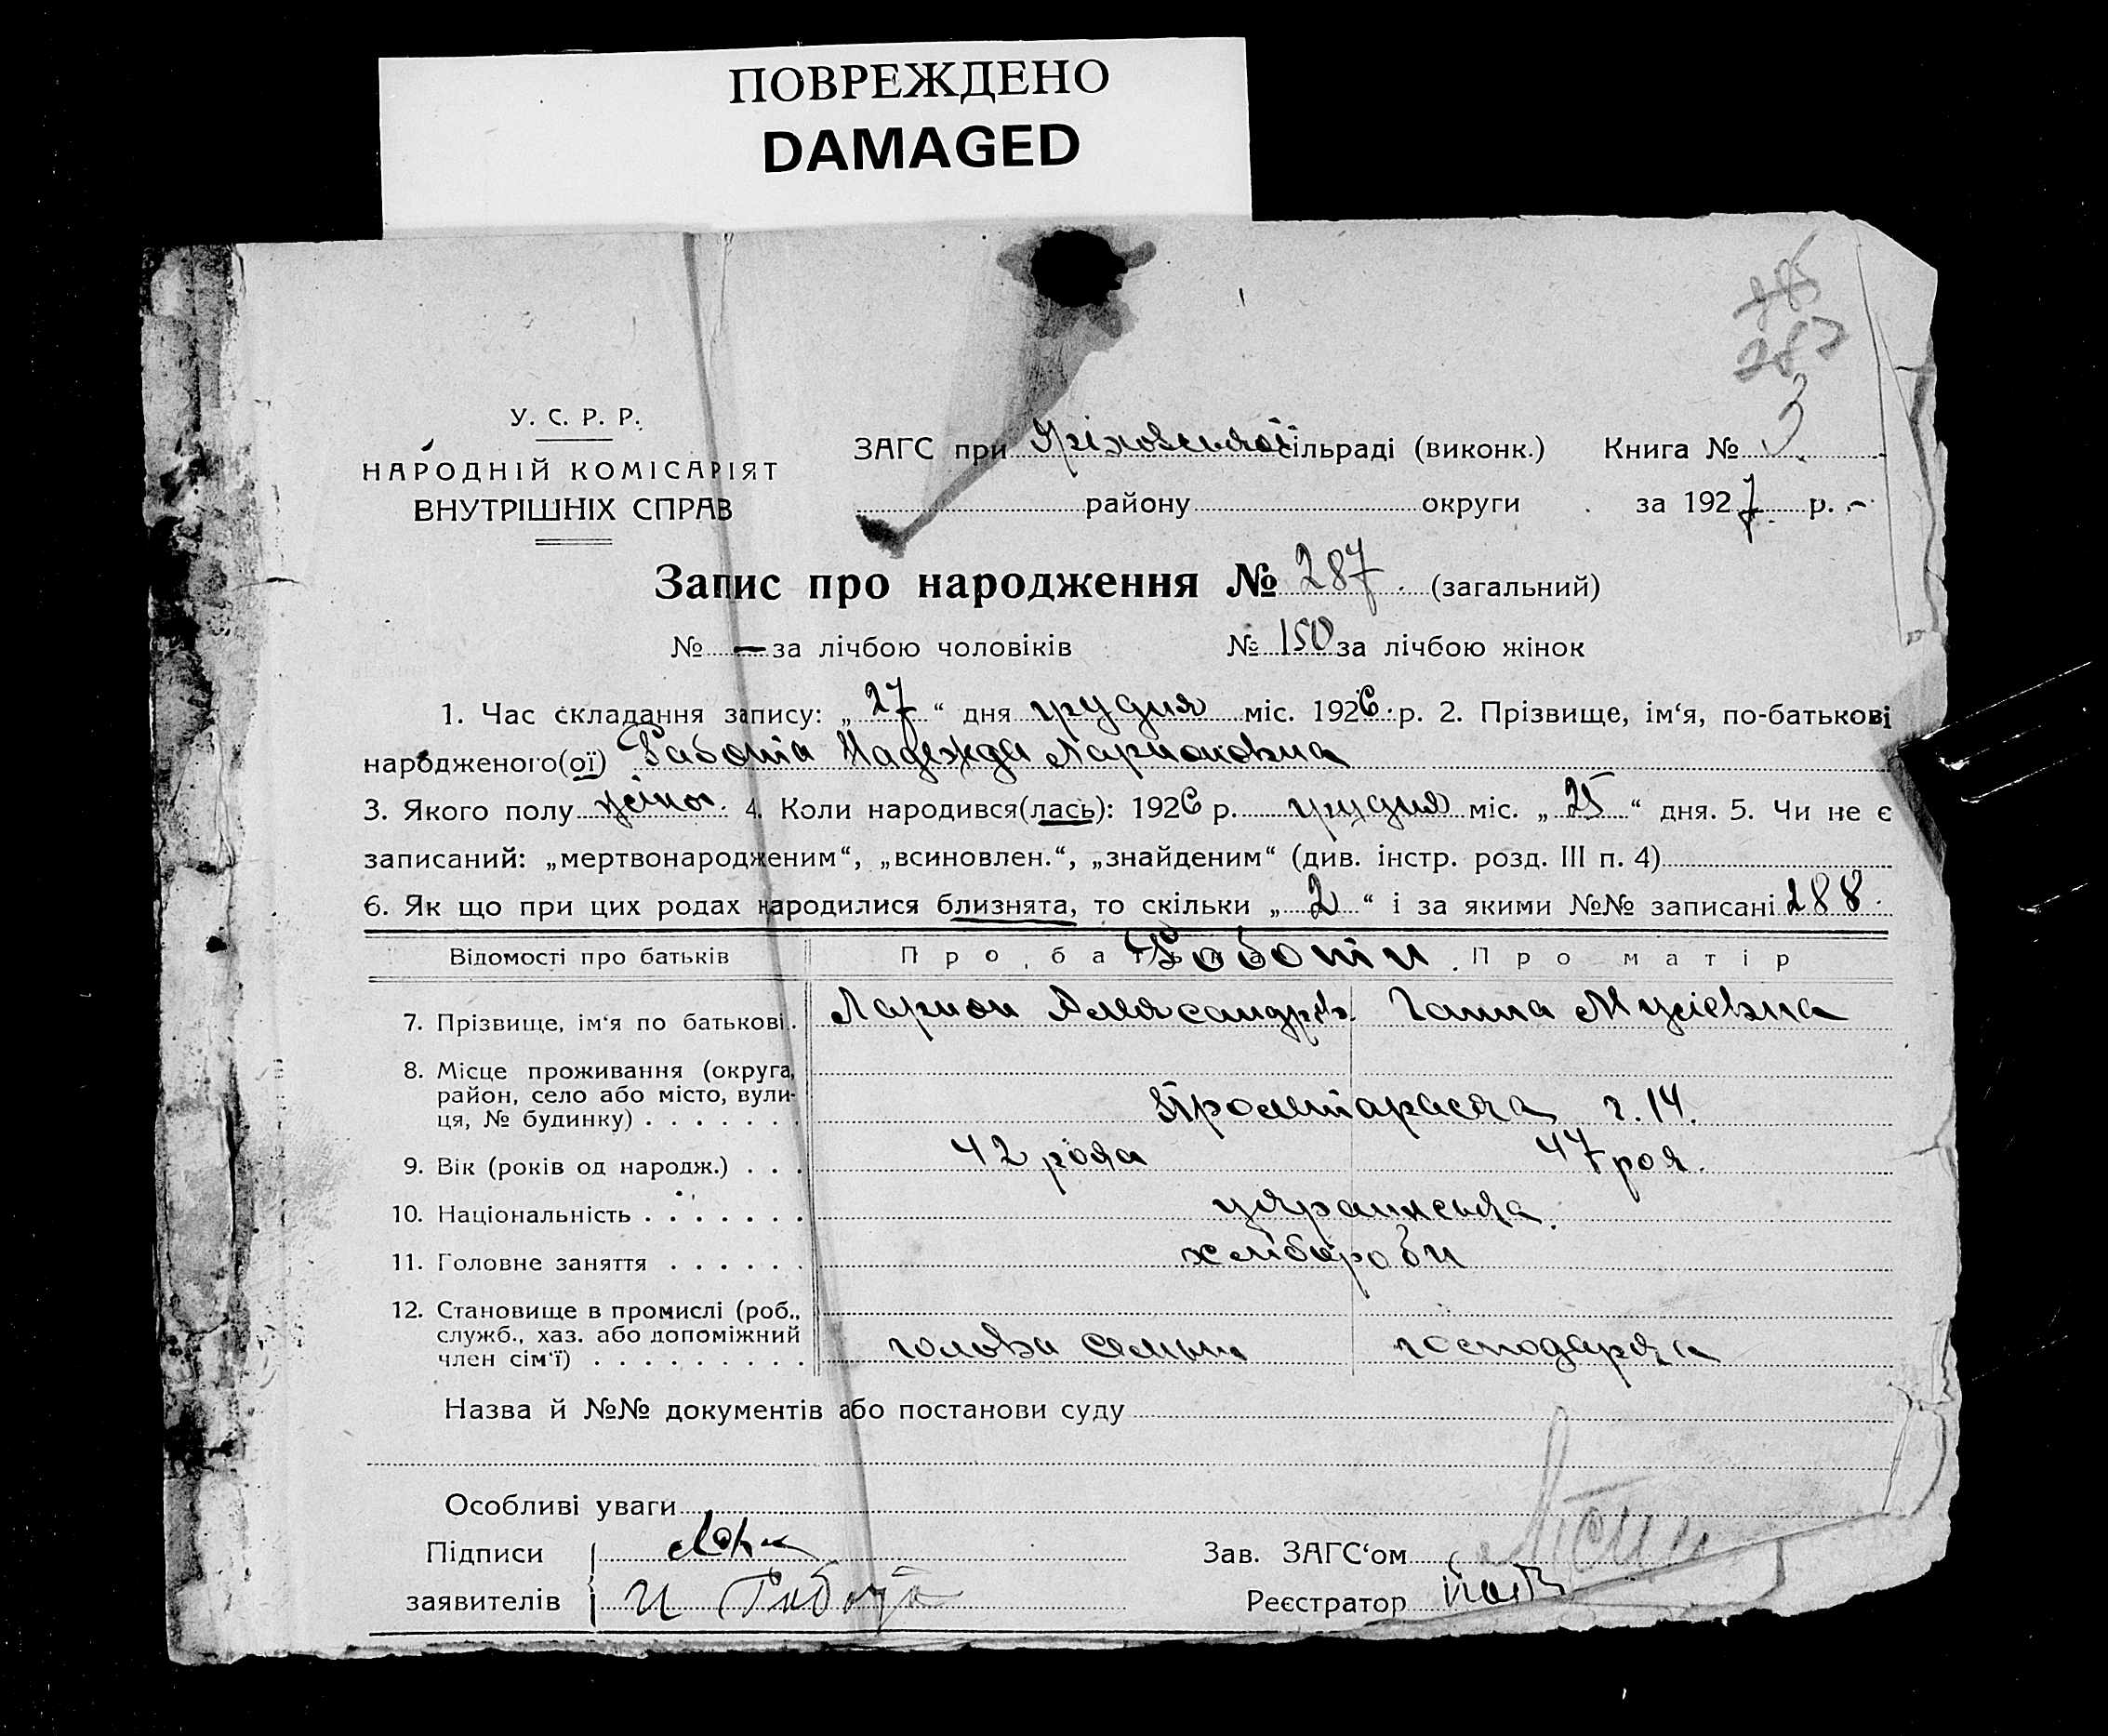 ПОВРЕЖДЕНО
DAMAGED
287
У. С. Р. Р.
НАРОДНІЙ КОМІСАРІЯТ
ВНУТРІШНІХ СПРАВ
ЗАГС при Оріховській сільраді (виконк.) Книга № 3
району округи за 1927 р.
Запис про народження № 287. (загальний)
№ — за лічбою чоловіків № 150 за лічбою жінок
1. Час складання запису: „27“ дня грудня міс. 1926 р. 2. Прізвище, ім‘я, по-батькові
народженого(ої) Габота Надежда Ларионовна
3. Якого полу жіноч. 4. Коли народився(лась): 1926 р. грудня міс. „25“ дня. 5. Чи не є
записаний: „мертвонародженим“, „всиновлен.“, „знайденим“ (див. інстр. розд. III п. 4)
6. Як що при цих родах народилися близнята, то скільки „2“ і за якими №№ записані 288.
Відомості про батьків Про батька Про матір
7. Прізвище, ім‘я по батькові. Ларион Александр. Ганна Мусієвна
8. Місце проживання (округа,
район, село або місто, вули-
ця, № будинку) . . . . . . . Пролетарська 14.
9. Вік (років од народж.) . . . 42 рока 47 рок.
10. Національність . . . . . . . українська.
11. Головне заняття . . . . . . хлібороби
12. Становище в промислі (роб.,
служб., хаз. або допоміжний
член сім‘ї) . . . . . . . . . голова семьи господарка
Назва й №№ документів або постанови суду
Особливі уваги
Підписи
заявителів
Зав. ЗАГС‘ом
Реєстратор